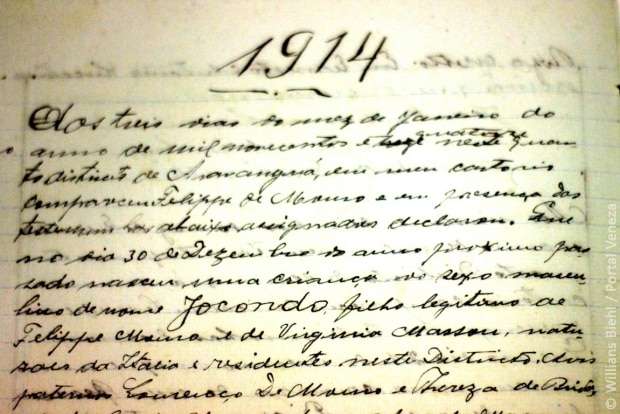 1914
Aos tres dias do mez de Janeiro do
anno de mil novecentos e treze quatorze neste quar-
to districto de Araranguá, em meu cartorio
compareceu Felippe de Mouro e em presença das
testemunhas abaixo assignadas declarou. Que
no dia 30 de Dezembro do anno proximo pas-
sado nasceu uma criança do sexo mascu-
lino de nome Jocondo, filho legitimo de
Felippe Mouro e de Virginia Massou, natu-
raes da Italia e residentes neste Districto. Avós
paternos Lourenço De Mouro e Thereza de
© Willians Biehl / Portal Veneza